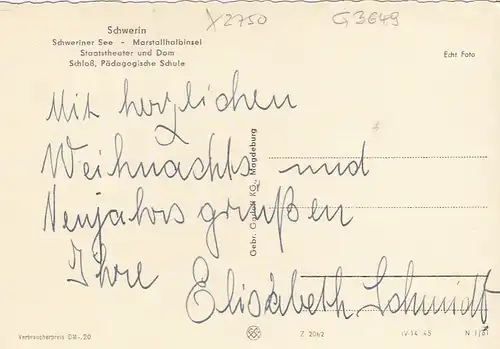 X2750 G3649
Schwerin
Schweriner See - Marstallhalbinsel
Staatstheater und Dom
Schloß, Pädagogische Schule
Echt Foto
Mit herzlichen
Weihnachts und
Neujahrsgrüßen
Ihre
Elisabeth Schmidt
Gebr. Garloff KG., Magdeburg
Verbraucherpreis DM -,20
Z 2062
IV-14-45
N 1/61